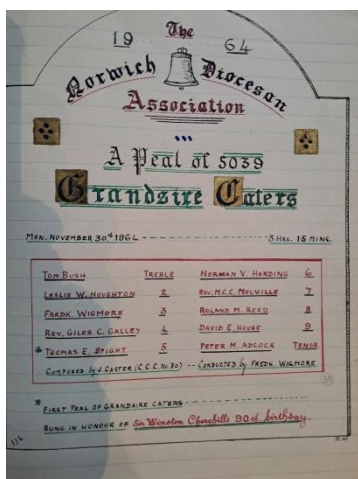 The
19 64
Norwich Diocesan
Association
A Peal of 5039
Grandsire Caters
MON. NOVEMBER 30th 1964 3 HRS. 15 MINS.
TOM BUSH TREBLE NORMAN V. HARDING 6
LESLIE W. HOUGHTON 2 REV. M.C.C. MELVILLE 7
FREDK. WIGMORE 3 ROLAND M. REED 8
REV. GILES C. GALLEY 4 DAVID E. HOUSE 9
* THOMAS E. SPIGHT 5 PETER M. ADCOCK TENOR
COMPOSED BY J. CARTER (C.C.C. No. 30) -- CONDUCTED BY FREDK. WIGMORE
* FIRST PEAL OF GRANDSIRE CATERS
RUNG IN HONOUR OF Sir Winston Churchills 90th birthday.